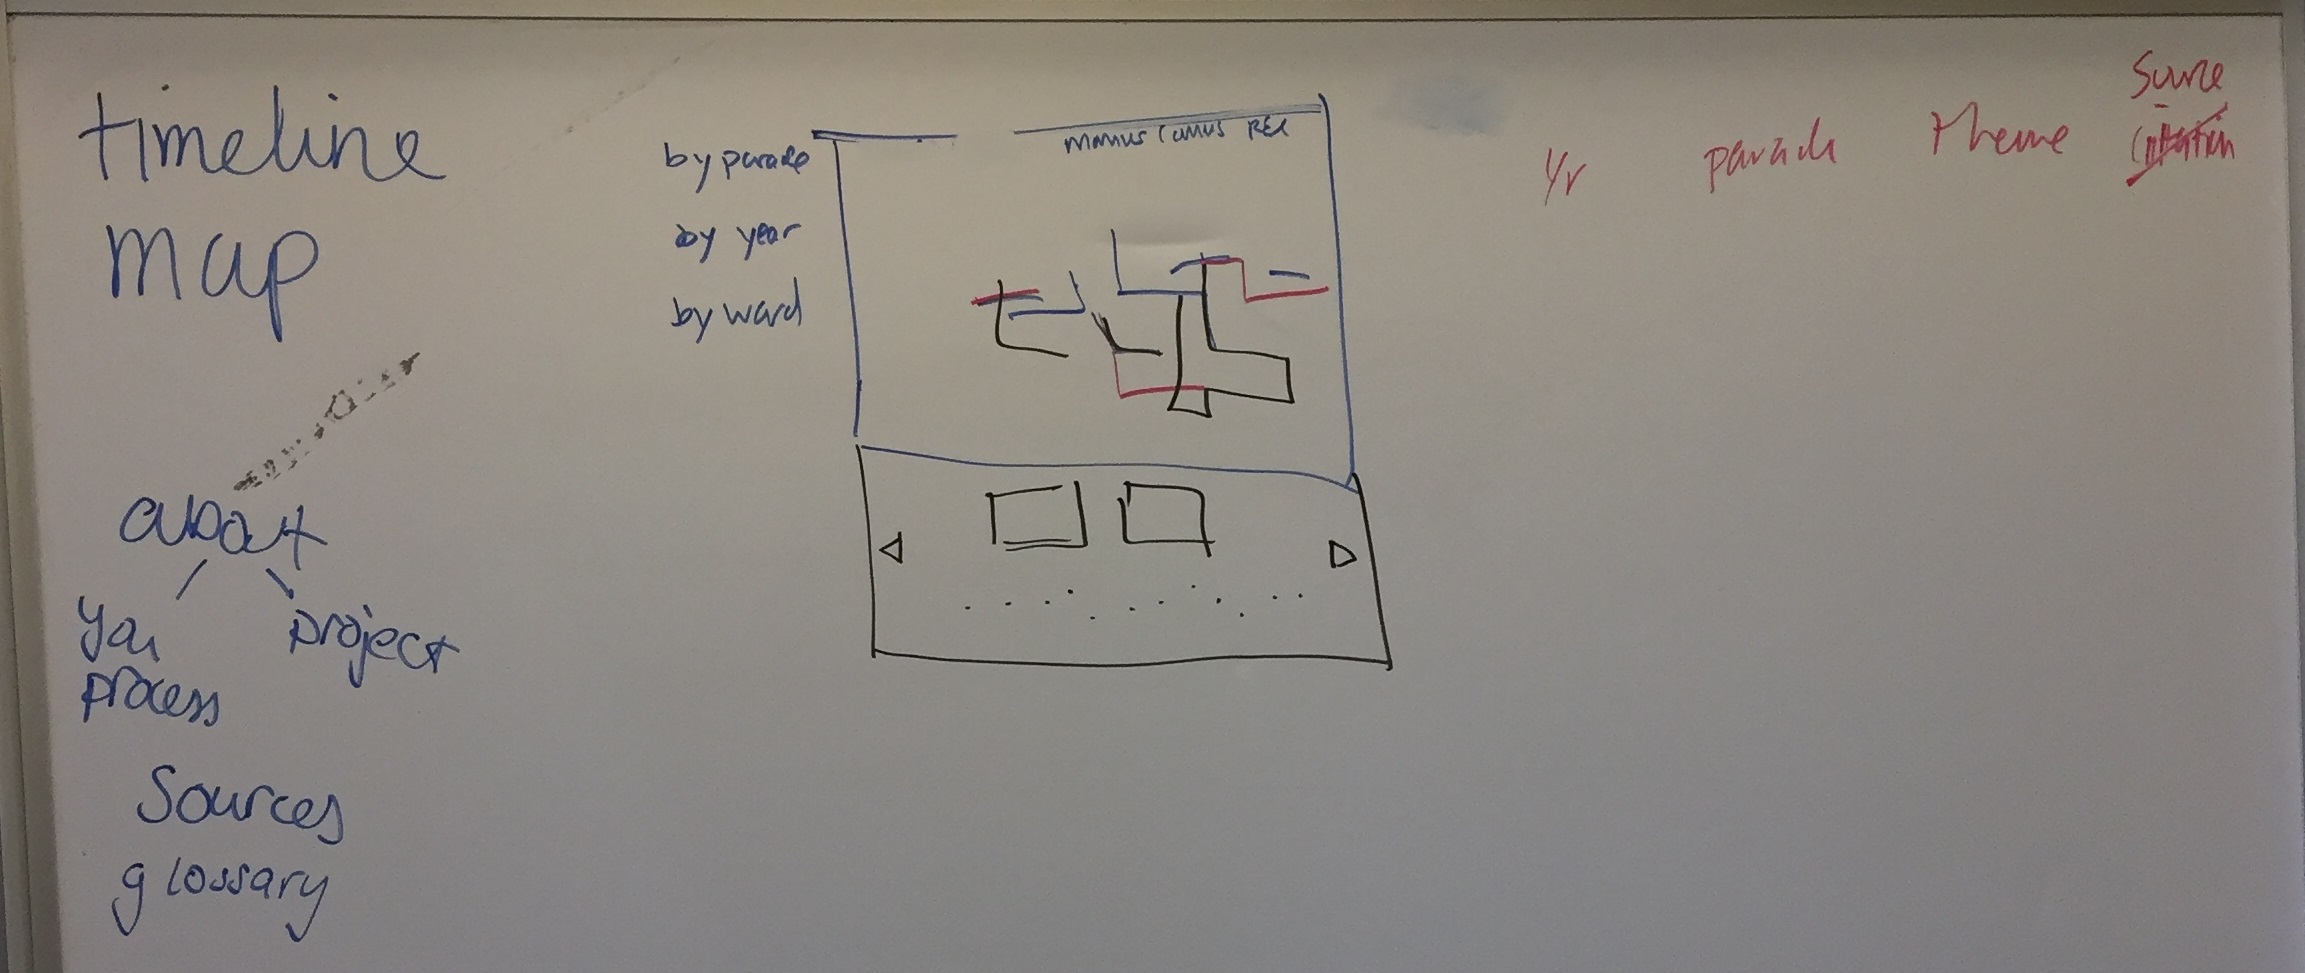 timeline
map
about
you
process
project
Sources
glossary
by parade
by year
by ward
momus comus REX
Yr
parade
theme
Source